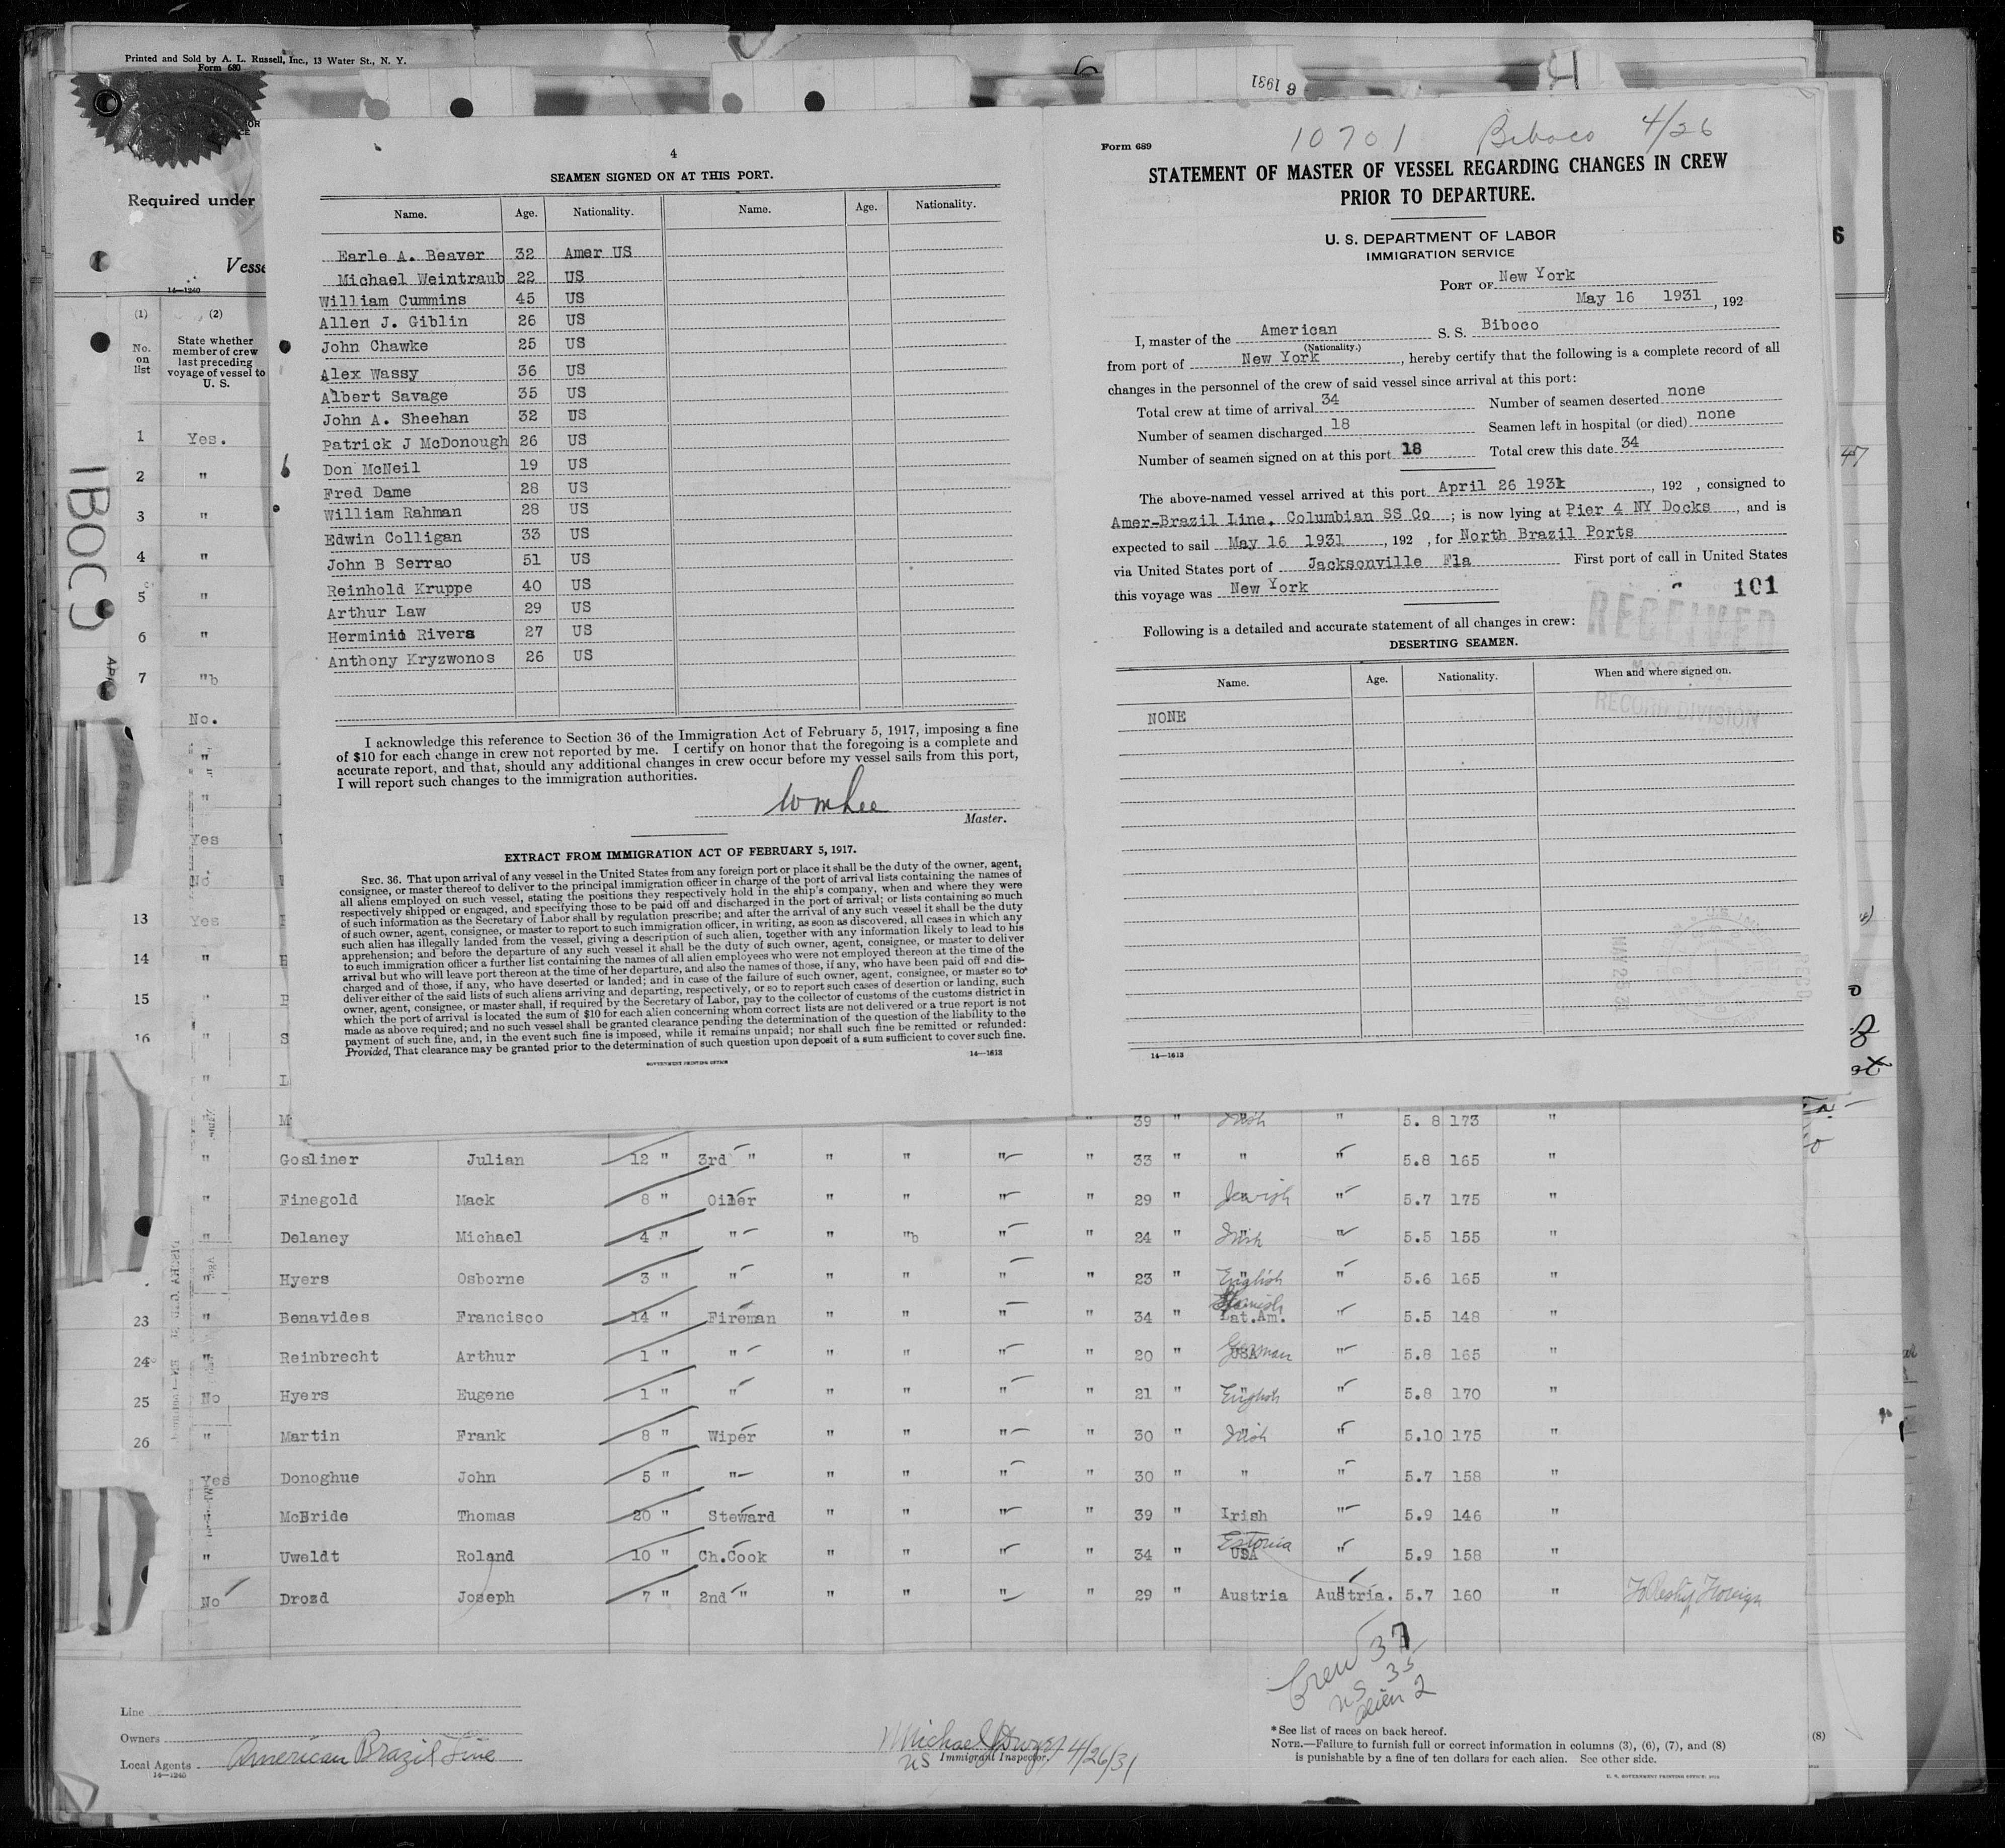 Printed and Sold by A. L. Russell, Inc., 13 Water St., N. Y.
Form 680
Required under
Vesse
14—1240
(1) (2)
No. on list
State whether member of crew last preceding voyage of vessel to U. S.
1 Yes.
2 "
3 "
4 "
5 "
6 "
7 "b
No.
"
"
"
Yes
No.
13 Yes
14 "
15 "
16 "
4
SEAMEN SIGNED ON AT THIS PORT.
Name. Age. Nationality. Name. Age. Nationality.
Earle A. Beaver 32 Amer US
Michael Weintraub 22 US
William Cummins 45 US
Allen J. Giblin 26 US
John Chawke 25 US
Alex Wassy 36 US
Albert Savage 35 US
John A. Sheehan 32 US
Patrick J McDonough 26 US
Don McNeil 19 US
Fred Dame 28 US
William Rahman 28 US
Edwin Colligan 33 US
John B Serrao 51 US
Reinhold Kruppe 40 US
Arthur Law 29 US
Herminio Rivera 27 US
Anthony Kryzwonos 26 US
I acknowledge this reference to Section 36 of the Immigration Act of February 5, 1917, imposing a fine
of $10 for each change in crew not reported by me. I certify on honor that the foregoing is a complete and
accurate report, and that, should any additional changes in crew occur before my vessel sails from this port,
I will report such changes to the immigration authorities.
Wm Lee
Master.
EXTRACT FROM IMMIGRATION ACT OF FEBRUARY 5, 1917.
SEC. 36. That upon arrival of any vessel in the United States from any foreign port or place it shall be the duty of the owner, agent,
consignee, or master thereof to deliver to the principal immigration officer in charge of the port of arrival lists containing the names of
all aliens employed on such vessel, stating the positions they respectively hold in the ship's company, when and where they were
respectively shipped or engaged, and specifying those to be paid off and discharged in the port of arrival; or lists containing so much
of such information as the Secretary of Labor shall by regulation prescribe; and after the arrival of any such vessel it shall be the duty
of such owner, agent, consignee, or master to report to such immigration officer, in writing, as soon as discovered, all cases in which any
such alien has illegally landed from the vessel, giving a description of such alien, together with any information likely to lead to his
apprehension; and before the departure of any such vessel it shall be the duty of such owner, agent, consignee, or master to deliver
to such immigration officer a further list containing the names of all alien employees who were not employed thereon at the time of the
arrival but who will leave port thereon at the time of her departure, and also the names of those, if any, who have been paid off and dis-
charged and of those, if any, who have deserted or landed; and in case of the failure of such owner, agent, consignee, or master so to
deliver either of the said lists of such aliens arriving and departing, respectively, or so to report such cases of desertion or landing, such
owner, agent, consignee, or master shall, if required by the Secretary of Labor, pay to the collector of customs of the customs district in
which the port of arrival is located the sum of $10 for each alien concerning whom correct lists are not delivered or a true report is not
made as above required; and no such vessel shall be granted clearance pending the determination of the question of the liability to the
payment of such fine, and, in the event such fine is imposed, while it remains unpaid; nor shall such fine be remitted or refunded:
Provided, That clearance may be granted prior to the determination of such question upon deposit of a sum sufficient to cover such fine.
GOVERNMENT PRINTING OFFICE 14—1613
10701 Biboco 4/26
Form 689
STATEMENT OF MASTER OF VESSEL REGARDING CHANGES IN CREW
PRIOR TO DEPARTURE.
U. S. DEPARTMENT OF LABOR
IMMIGRATION SERVICE
PORT OF New York
May 16 1931, 192
I, master of the American S. S. Biboco
(Nationality.)
from port of New York, hereby certify that the following is a complete record of all
changes in the personnel of the crew of said vessel since arrival at this port:
Total crew at time of arrival 34 Number of seamen deserted none
Number of seamen discharged 18 Seamen left in hospital (or died) none
Number of seamen signed on at this port 18 Total crew this date 34
The above-named vessel arrived at this port April 26 1931, 192 , consigned to
Amer-Brazil Line. Columbian SS Co ; is now lying at Pier 4 NY Docks , and is
expected to sail May 16 1931 , 192 , for North Brazil Ports
via United States port of Jacksonville Fla First port of call in United States
this voyage was New York
101
RECEIVED
RECORD DIVISION
Following is a detailed and accurate statement of all changes in crew:
DESERTING SEAMEN.
Name. Age. Nationality. When and where signed on.
NONE
14—1613
39 " Irish " 5. 8 173 "
" Gosliner Julian 12 " 3rd " " " " " 33 " " " 5.8 165 "
" Finegold Mack 8 " Oiler " " " " 29 " Jewish " 5.7 175 "
" Delaney Michael 4 " " " "b " " 24 " Irish " 5.5 155 "
" Hyers Osborne 3 " " " " " " 23 " English " 5.6 165 "
23 " Benavides Francisco 14 " Fireman " " " " 34 " Spanish Lat.Am. " 5.5 148 "
24 " Reinbrecht Arthur 1 " " " " " " 20 " USA German " 5.8 165 "
25 No Hyers Eugene 1 " " " " " " 21 " English " 5.8 170 "
26 " Martin Frank 8 " Wiper " " " " 30 " Irish " 5.10 175 "
Yes Donoghue John 5 " " " " " " 30 " " " 5.7 158 "
" McBride Thomas 20 " Steward " " " " 39 " Irish " 5.9 146 "
" Uweldt Roland 10 " Ch.Cook " " " " 34 " Estonia USA " 5.9 158 "
No Drozd Joseph 7 " 2nd " " " " " 29 " Austria Austria. 5.7 160 " To Reship Foreign
Crew 37
US 35
Alien 2
Line
Owners
Local Agents American Brazil Line
14—1240
US Immigrant Inspector. 4/26/31
*See list of races on back hereof.
NOTE.—Failure to furnish full or correct information in columns (3), (6), (7), and (8)
is punishable by a fine of ten dollars for each alien. See other side.
(8)